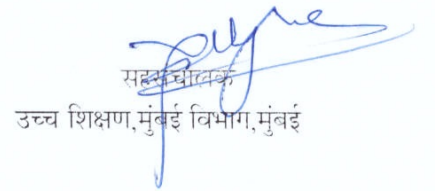 सहसंचालक
उच्च शिक्षण,मुंबई विभाग,मुंबई